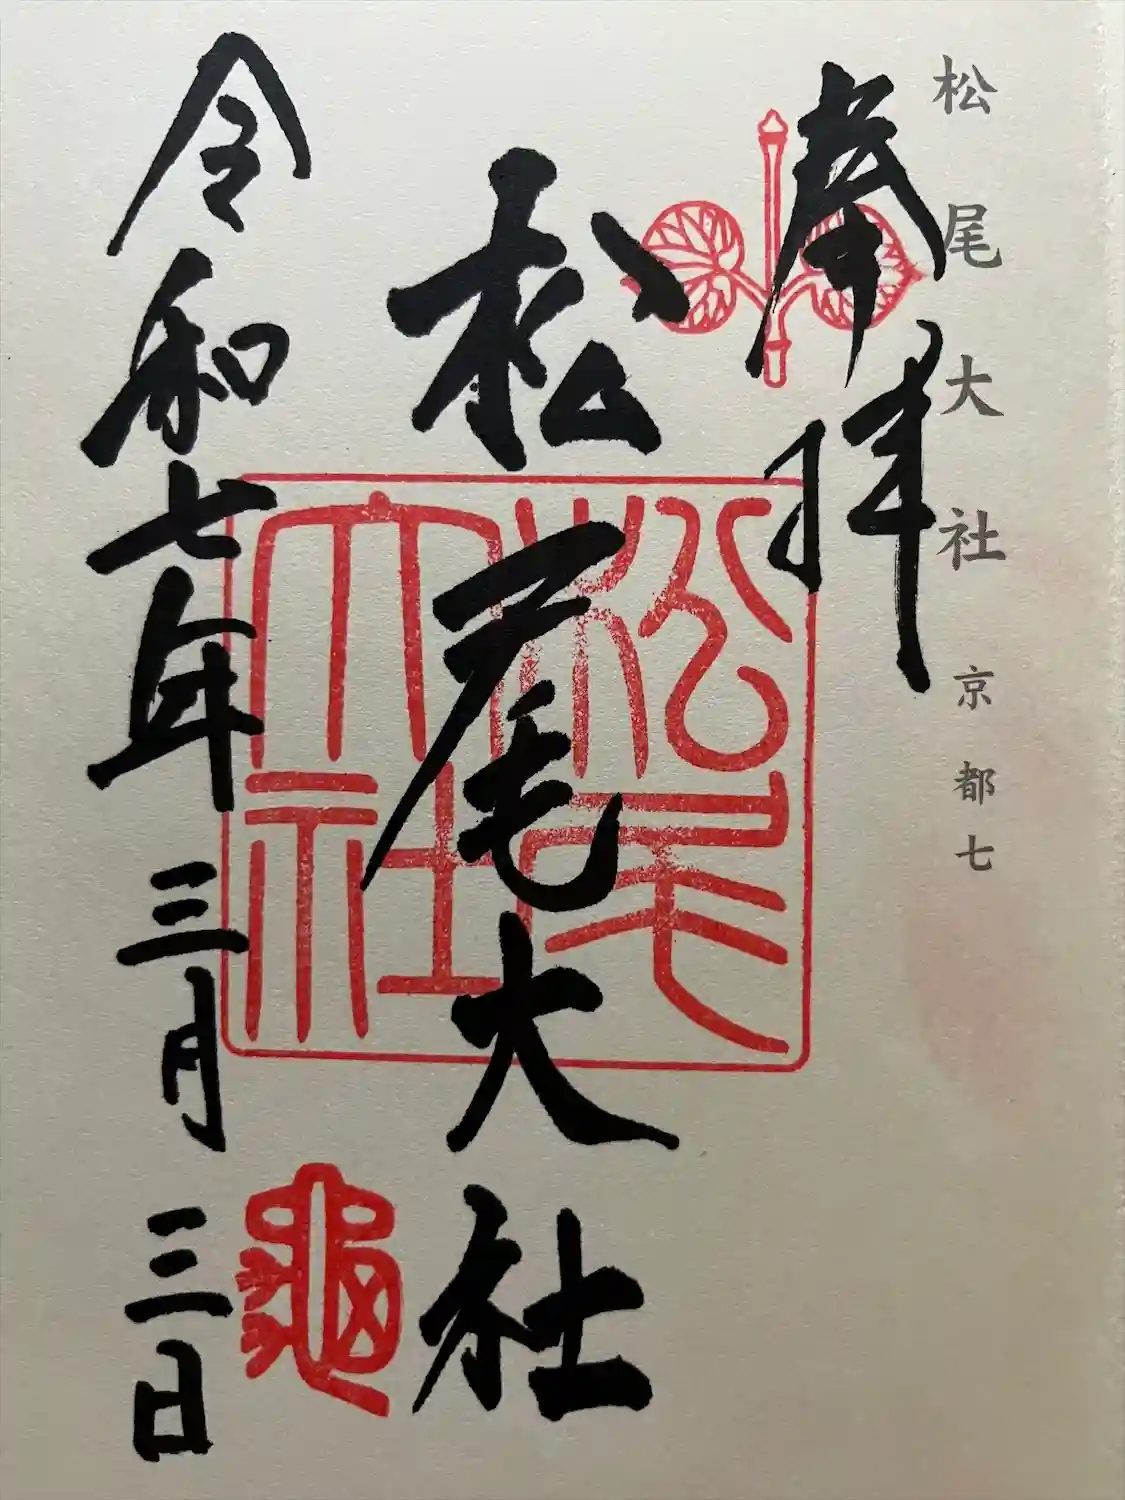 松尾大社 京都七
奉拝
松尾大社
松尾大社
龜
令和七年三月三日